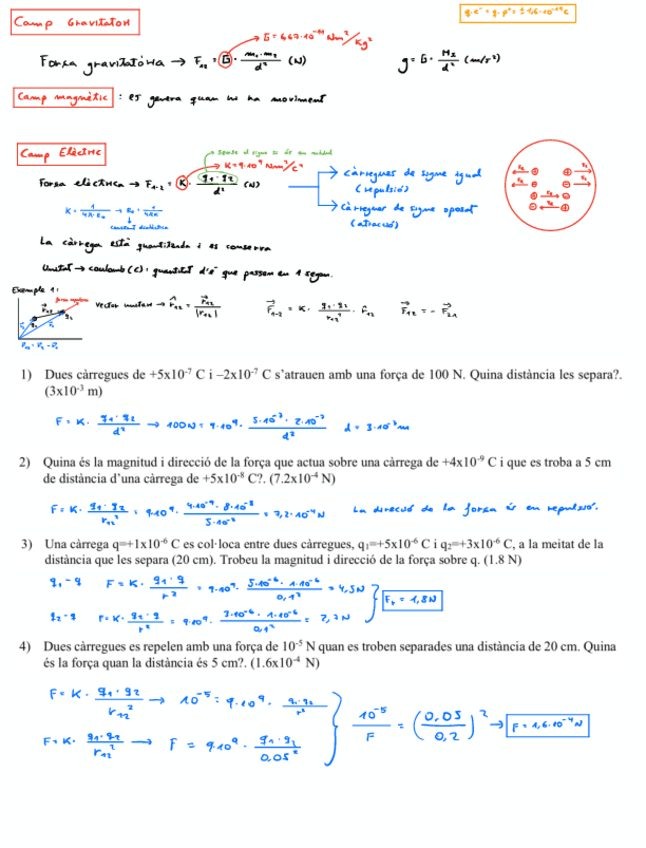 Camp Gravitatori
q.e⁻ = q.p⁺ = ±1,6·10⁻¹⁹C
G = 6,67·10⁻¹¹ Nm²/Kg²
Força gravitatòria → F₁₂ = G · m₁·m₂/d² (N)
g = G · M₂/d² (m/s²)
Camp magnètic : es genera quan hi ha moviment
Camp Elèctric
K = 9·10⁹ Nm²/C²
Força elèctrica → F₁₋₂ = K · q₁·q₂/d² (N)
→ càrregues de signe igual
(repulsió)
→ càrregues de signe oposat
(atracció)
K = 1/4π·ε₀ → ε₀ = 1/4πK
constant dielèctrica
La càrrega està quantitzada i es conserva
Unitat → coulomb (C): quantitat d'e⁻ que passen en 1 segon.
Exemple 1:
vector unitari → r̂₁₂ = r⃗₁₂/|r₁₂|
F⃗₁₋₂ = K · q₁·q₂/r₁₂² · r̂₁₂
F⃗₁₂ = - F⃗₂₁
1) Dues càrregues de +5x10⁻⁷ C i –2x10⁻⁷ C s’atrauen amb una força de 100 N. Quina distància les separa?.
(3x10⁻³ m)
F = K · q₁·q₂/d² → 100N = 9·10⁹ · 5·10⁻⁷·2·10⁻⁷/d² d = 3·10⁻³m
2) Quina és la magnitud i direcció de la força que actua sobre una càrrega de +4x10⁻⁹ C i que es troba a 5 cm
de distància d’una càrrega de +5x10⁻⁸ C?. (7.2x10⁻⁴ N)
F = K · q₁·q₂/r₁₂² = 9·10⁹ · 4·10⁻⁹·8·10⁻⁸/5·10⁻² = 7,2·10⁻⁴N La direcció de la força és en repulsió.
3) Una càrrega q=+1x10⁻⁶ C es col·loca entre dues càrregues, q₁=+5x10⁻⁶ C i q₂=+3x10⁻⁶ C, a la meitat de la
distància que les separa (20 cm). Trobeu la magnitud i direcció de la força sobre q. (1.8 N)
q₁-q F = K · q₁·q/r² = 9·10⁹ · 5·10⁻⁶·1·10⁻⁶/0,1² = 4,5N
Fᵣ = 1,8N
q₂-q F = K · q₂·q/r² = 9·10⁹ · 3·10⁻⁶·1·10⁻⁶/0,1² = 2,7N
4) Dues càrregues es repelen amb una força de 10⁻⁵ N quan es troben separades una distància de 20 cm. Quina
és la força quan la distància és 5 cm?. (1.6x10⁻⁴ N)
F = K · q₁·q₂/r₁₂² → 10⁻⁵ = 9·10⁹ · q₁·q₂/r²
10⁻⁵/F = (0,05/0,2)² → F = 1,6·10⁻⁴N
F = K · q₁·q₂/r₁₂² → F = 9·10⁹ · q₁·q₂/0,05²